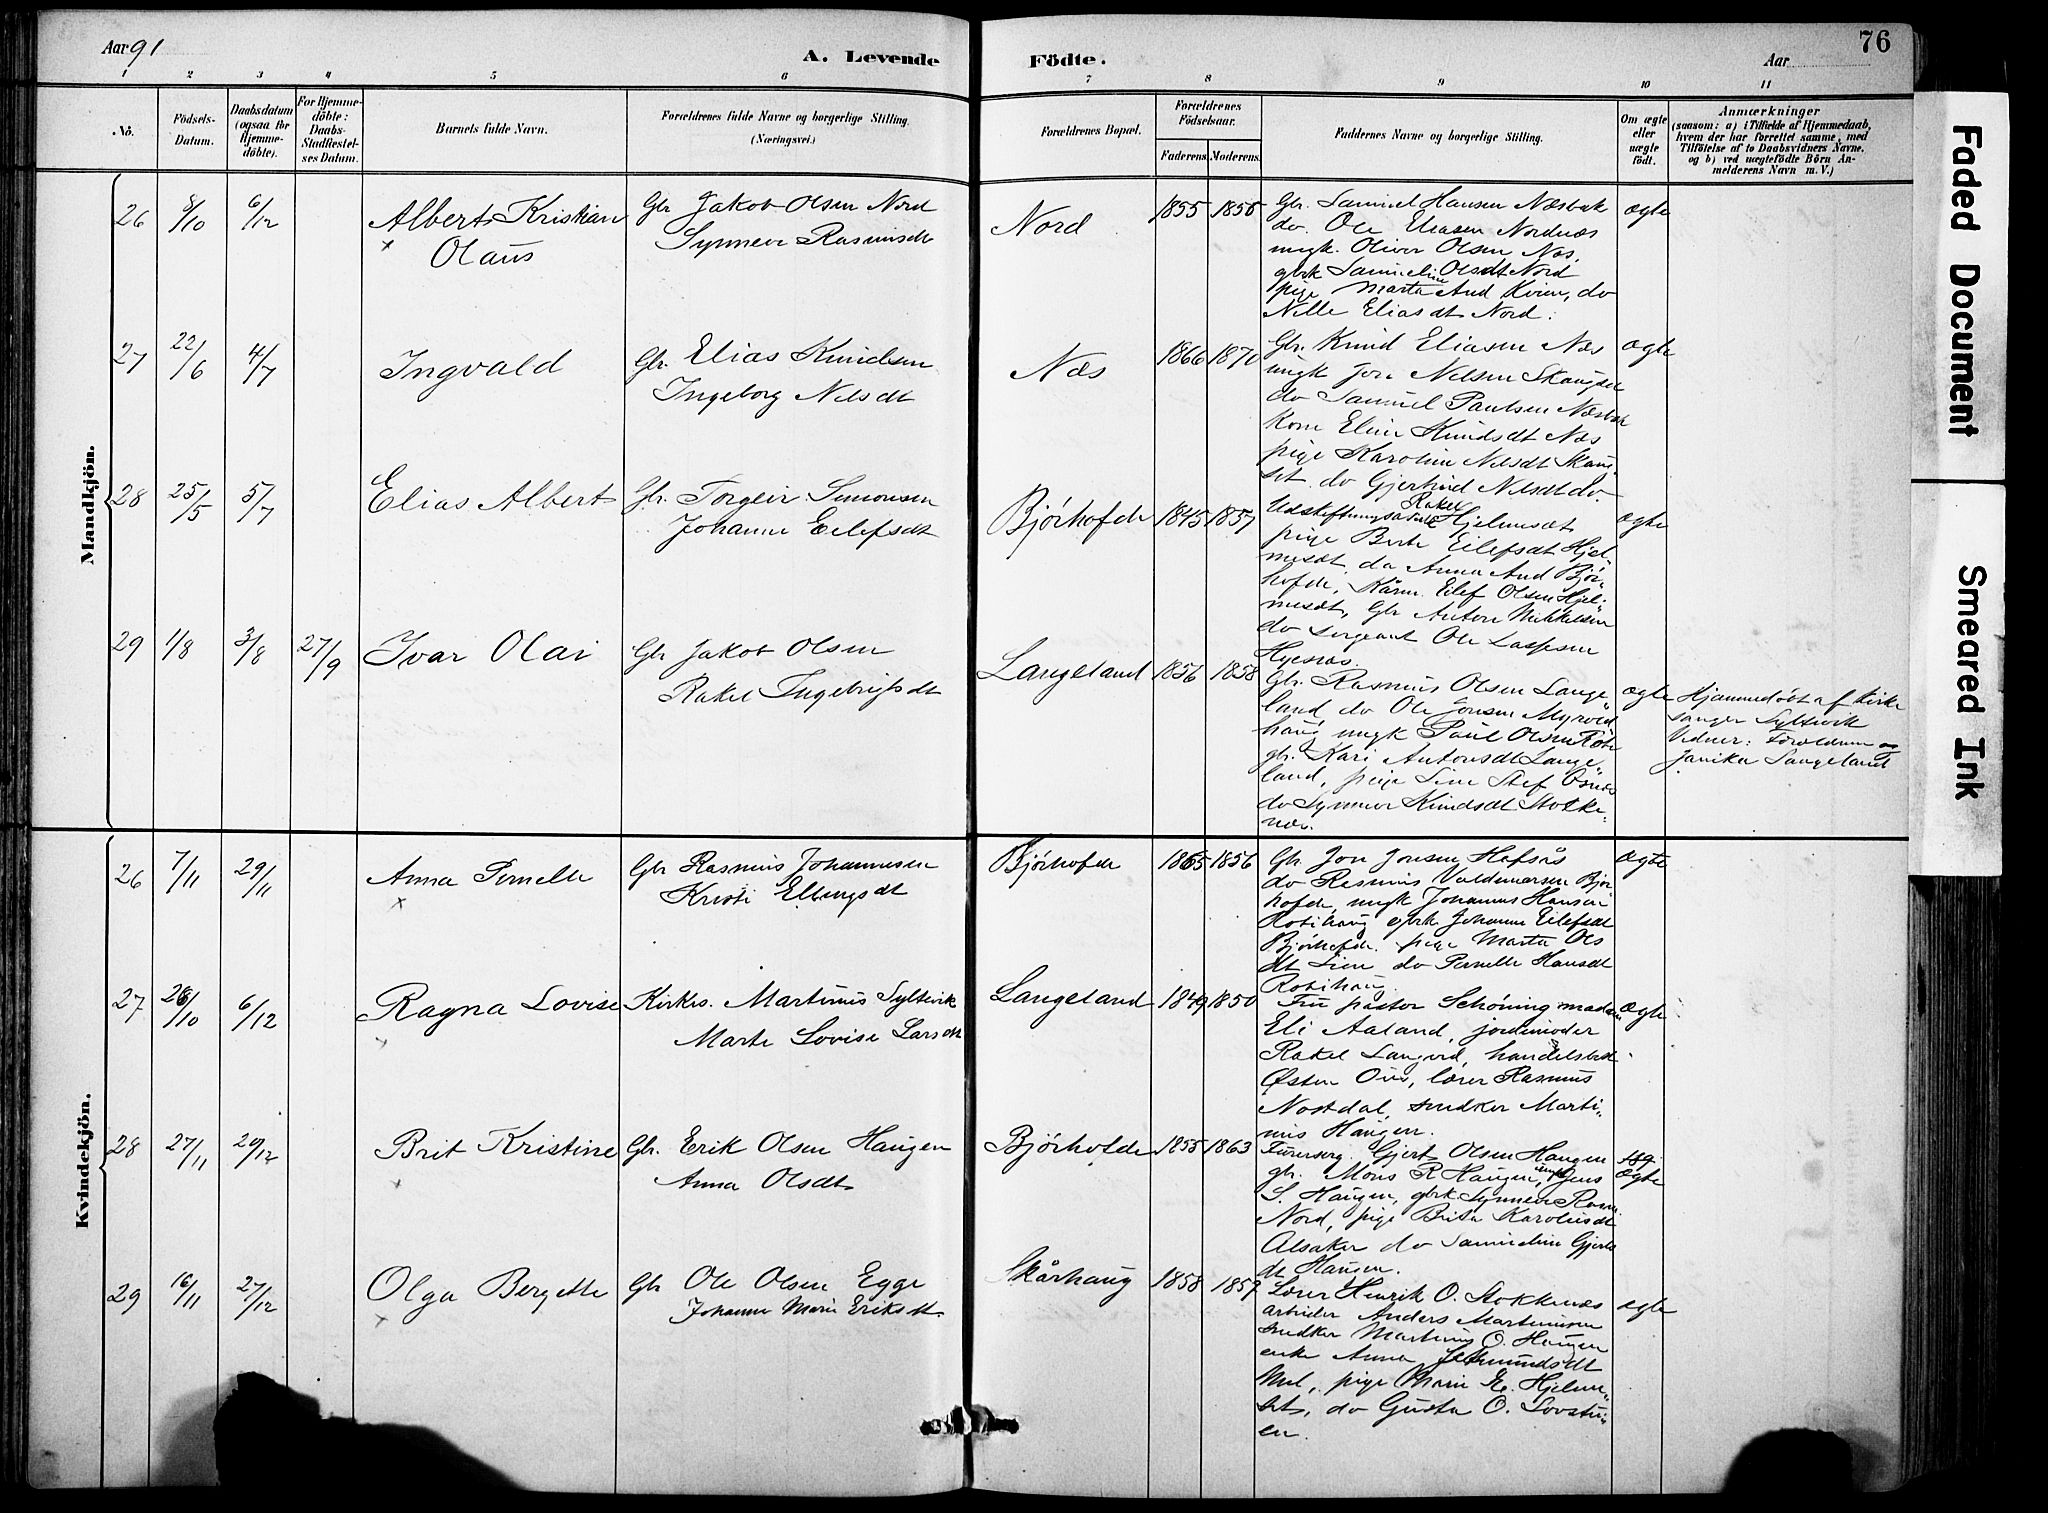 Aar 91
A. Levende
Födte.
Aar
76
1 2 3 4 5 6 7 8 9 10 11
No.
Födsels-
Datum.
Daabsdatum
(ogsaa for
Hjemme-
döbte).
For Hjemme-
döbte:
Daabs-
Stadfæstel-
ses Datum.
Barnets fulde Navn.
Forældrenes fulde Navne og borgerlige Stilling.
(Næringsvei.)
Forældrenes Bopæl.
Forældrenes
Födselsaar.
Faderens.
Moderens.
Faddernes Navne og borgerlige Stilling.
Om ægte
eller
uægte
födt.
Anmærkninger
(saasom: a) i Tilfælde af Hjemmedaab,
hvem der har forrettet samme, med
Tilföielse af to Daabsvidners Navne,
og b) ved uægtefödte Börn An-
melderens Navn m.V.)
Mandkjön.
26 8/10 6/12
Albert Kristian
Olaus
Gbr Jakob Olsen Nord
Synneve Rasmusdt
Nord
1855 1856
Gbr. Samuel Hansen Næsbak
do. Ole Eliasen Nordnæs
ungk. Oliver Olsen Næs.
gbrk Samueline Olsdt Nord
pige Marta And Kvien, do
Nille Eliasdt Nord.
ægte
27 22/6 4/7
Ingvald
Gbr. Elias Knudsen
Ingeborg Nelsdt
Næs
1866 1870
Gbr. Knud Eliasen Næs
ungk Jon Nelsen Skaugset
do Samuel Paulsen Næsbak
Kone Eline Knudsdt Næs
pige Karoline Nelsdt Skaug
set do Gjertrud Nelsdt do.
ægte
28 25/5 5/7
Elias Albert
Gbr. Torgeir Simonsen
Johanne Eilefsdt
Bjørhofde
1845 1857
Rakel Hjelmesæt
pige Berte Eilefsdt Hjel
mesæt, do Anna And Bjør-
hofde, Kårm. Eilef Olsen Hjel-
mesæt, Gbr Anton Mikkelsen
do sergeant Ole Lassesen
Hyesnæs.
ægte
29 1/8 3/8 27/9
Ivar Olai
Gbr Jakob Olsen
Rakel Ingebrigtsdt
Langeland
1856 1858
Gbr. Rasmus Olsen Lange
land do Ole Jonsen Myrvold
haug ungk Paul Olsen
gbr. Kari Antonsdt Lange
land, pige Line Stef Osnæs
do Synneve Knudsdt Stokke
næs.
ægte
Hjemmedøbt af Kirke
sanger Syltevik
Vidner: Forældrene og
Janika Langeland
Kvindekjön.
26 7/11 29/11
Anna Pernelle
Gbr Rasmus Johannesen
Kristi Ellingsdt
Bjørhofde
1865 1856
Gbr. Jon Jonsen Hofsås
do Rasmus Valdemarsen Bjør
hofde, ungk Johannes Hansen
Rotihaug gbrk Johanne Eilefsdt
Bjørhofde. pige Marta Ols
dt Lien do Pernelle Hansdt
Rotihaug.
ægte
27 28/10 6/12
Ragna Lovise
Kirkes. Martinus Syltevik
Marte Lovise Larsdt
Langeland
1849 1850
Fru pastor Schøning madam
Eli Aaland, jordmoder
Rakel Langvid, handelsbed
Østen Ous, lærer Rasmus
Nostdal, snedker Marti-
nus Haugen.
ægte
28 27/11 29/12
Brit Kristine
Gbr. Erik Olsen Haugen
Anna Olsdt
Bjørhofde
1855 1863
Furerserg. Gjert Olsen Haugen
gbr. Mons R Haugen, ungk Jens
S. Haugen, gbrk Synneve Rasm.
Nord, pige Brita Karolusdt
Alsaker do Samueline Gjerts
dt Haugen.
ægte
29 16/11 27/12
Olga Bergette
Gbr Ole Olsen Egge
Johanne Marie Eriksdt
Skårhaug
1858 1859
Lærer Henrik O. Stokkenæs
arbeider Anders Martinusen
snedker Martinus O. Haugen
enke Anna Asmundsdt
Mul, pige Marie E. Hjelme
set, do Gusta O. Lovstu-
en.
ægte
Faded Document
Smeared Ink